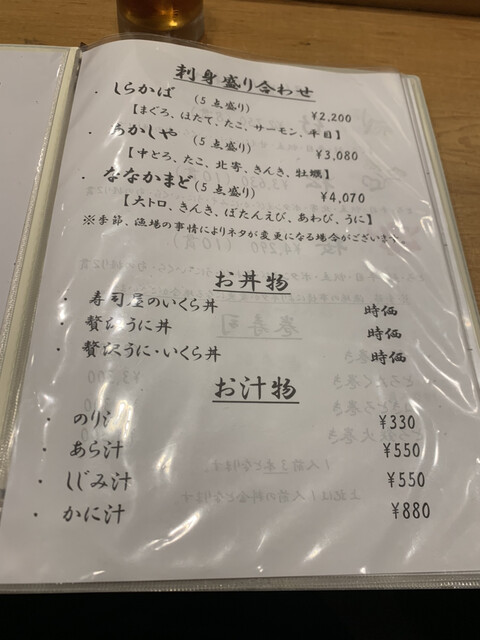 刺身盛り合わせ
・しらかば （5点盛り） ¥2,200
【まぐろ、ほたて、たこ、サーモン、平目】
・あかしや （5点盛り） ¥3,080
【中とろ、たこ、北寄、きんき、牡蠣】
・ななかまど（5点盛り） ¥4,070
【大トロ、きんき、ぼたんえび、あわび、うに】
※季節、漁場の事情によりネタが変更になる場合がございます。
お丼物
・寿司屋のいくら丼 時価
・贅沢うに丼 時価
・贅沢うに・いくら丼 時価
お汁物
・のり汁 ¥330
・あら汁 ¥550
・しじみ汁 ¥550
・かに汁 ¥880